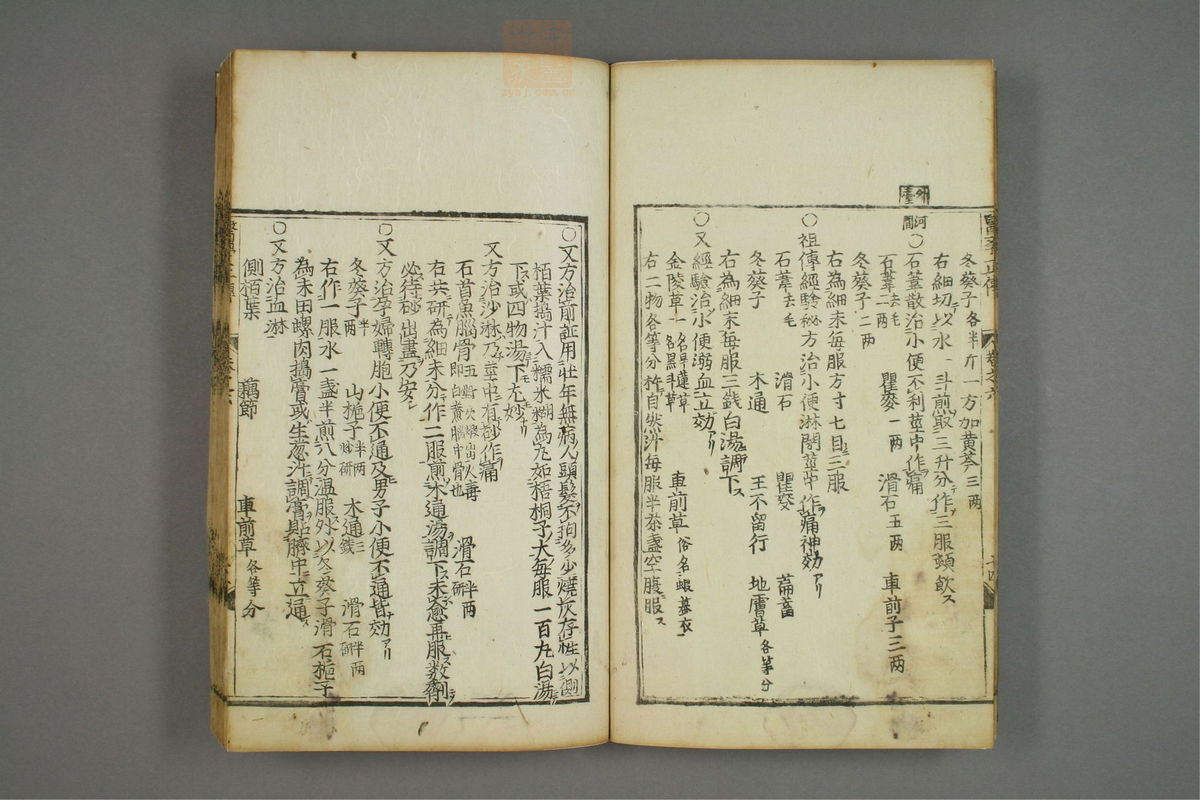 外臺
冬葵子各半斤一方加黄芩三两
右細切以水一斗煎取三升分作三服頻飲ス
河間
○石葦散治小便不利莖中作痛
石葦二两去毛 瞿麥一两 滑石五两 車前子三两
冬葵子二两
右為細末每服方寸七日三服
○祖傳經験秘方治小便淋閉莖中作痛神効アリ
石葦去毛 滑石 瞿麥 萹蓄
冬葵子 木通 王不留行 地膚草各等分
右為細末每服三銭白湯調下ス
○又經驗治小便溺血立効アリ
金陵草一名旱蓮草一名墨斗草 車前草俗名蝦蟇衣
右二物各等分杵自然汁每服半茶盞空腹服ス
○又方治前証用壮年無病人頭髮不拘多少燒灰存性以側
栢葉搗汁入糯米糊為丸如梧桐子大每服一百丸白湯
下或四物湯下尤妙
又方治沙淋乃莖中有砂作痛
石首魚腦骨五 即白黄腦中骨也 滑石半两研
右共研為細末分作二服煎木通湯調下未愈再服数劑
必待砂出盡乃安
○又方治孕婦轉胞小便不通及男子小便不通皆効アリ
冬葵子半两 山梔子半两炒研 木通三錢 滑石半两研
右作一服水一盞半煎八分温服外以冬葵子滑石梔子
為末田螺肉搗膏或生葱汁調膏貼臍中立通
○又方治血淋
側栢葉 藕節 車前草各等分